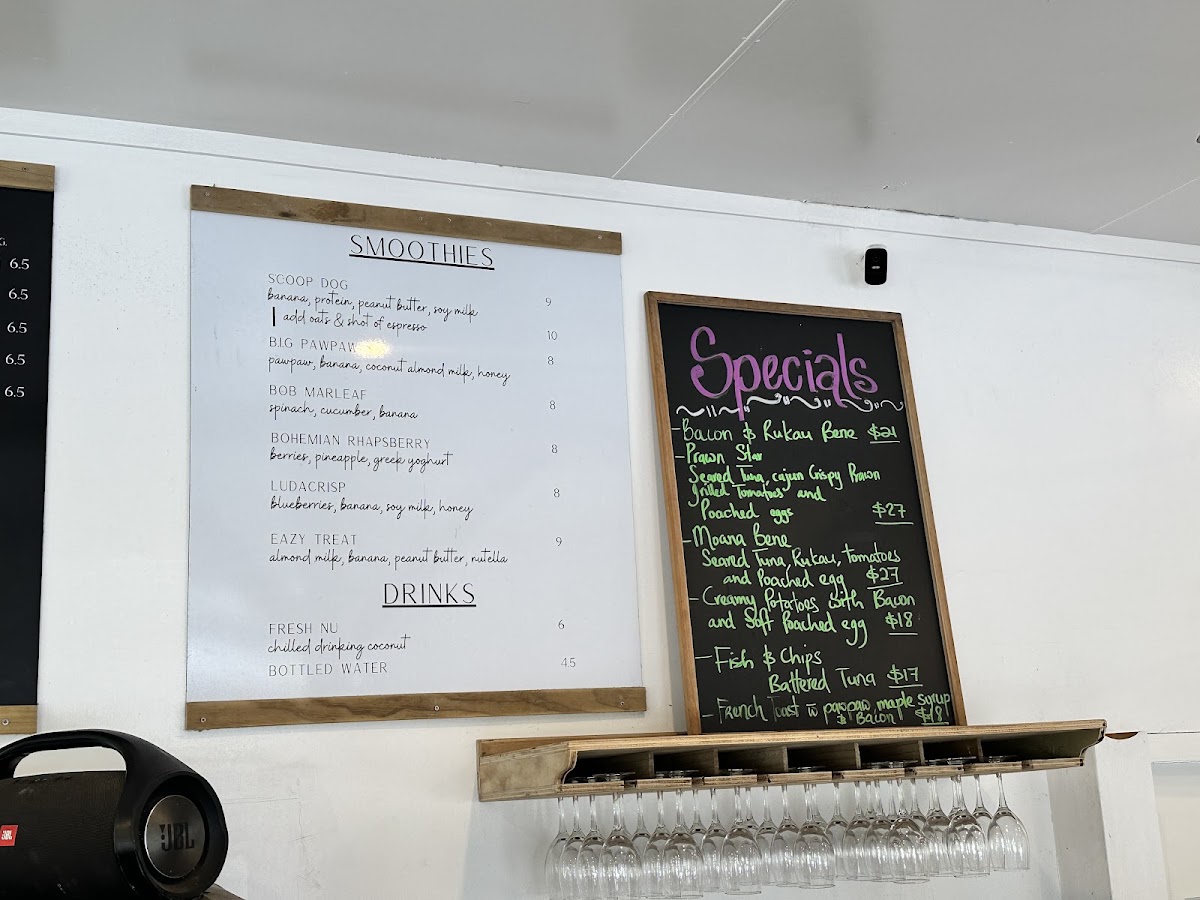 6.5
6.5
6.5
6.5
6.5
SMOOTHIES
SCOOP DOG
banana, protein, peanut butter, soy milk 9
add oats & shot of espresso 10
B.I.G PAWPAW 8
pawpaw, banana, coconut almond milk, honey
BOB MARLEAF
spinach, cucumber, banana 8
BOHEMIAN RHAPSBERRY
berries, pineapple, greek yoghurt 8
LUDACRISP
blueberries, banana, soy milk, honey 8
EAZY TREAT
almond milk, banana, peanut butter, nutella 9
DRINKS
FRESH NU 6
chilled drinking coconut
BOTTLED WATER 4.5
Specials
- Bacon & Rukau Bene $21
- Prawn Star
Seared Tuna, cajun Crispy Prawn
Grilled Tomatoes and
Poached eggs $27
- Moana Bene
Seared Tuna, Rukau, tomatoes
and Poached egg $27
- Creamy Potatoes with Bacon
and Soft Poached egg $18
- Fish & Chips
Battered Tuna $17
- French Toast w pawpaw maple syrup
& Bacon $18
JBL
JBL